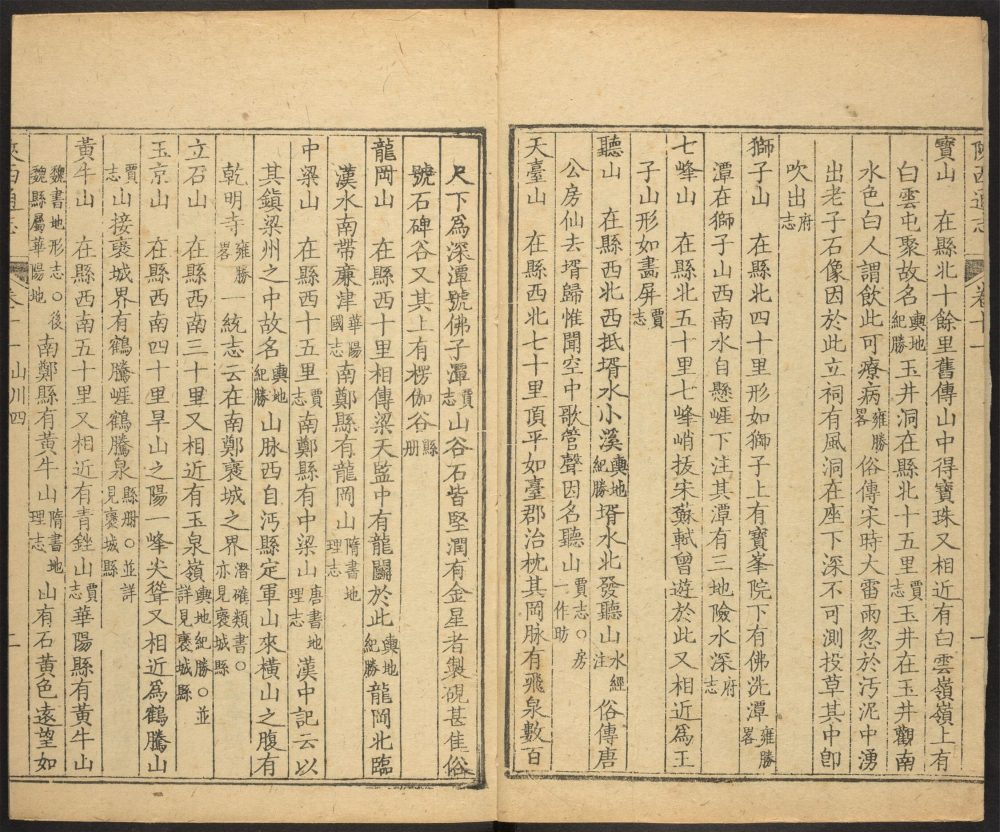 陝西通志 卷十一 一
寶山 在縣北十餘里舊傳山中得寶珠又相近有白雲嶺嶺上有
白雲屯聚故名輿地紀勝玉井洞在縣北十五里賈志玉井在玉井觀南
水色白人謂飲此可療病雍勝畧俗傳宋時大雷雨忽於汚泥中湧
出老子石像因於此立祠有風洞在座下深不可測投草其中卽
吹出府志
獅子山 在縣北四十里形如獅子上有寶峯院下有佛洗潭雍勝畧
潭在獅子山西南水自懸崖下注其潭有三地險水深府志
七峰山 在縣西北五十里七峰峭拔宋蘇軾曾遊於此又相近爲玉
子山形如畵屏賈志
聽山 在縣西北西抵壻水小溪輿地紀勝壻水北發聽山水經注俗傳唐
公房仙去壻歸惟聞空中歌管聲因名聽山賈志○房一作昉
天臺山 在縣西北七十里頂平如臺郡治枕其岡脉有飛泉數百
尺下爲深潭號佛子潭賈志山谷石皆堅潤有金星者製硯甚佳俗
號石碑谷又其上有楞伽谷縣册
龍岡山 在縣西十里相傳梁天監中有龍鬬於此輿地紀勝龍岡北臨
漢水南帶廉津華陽國志南鄭縣有龍岡山隋書地理志
中梁山 在縣西十五里賈志南鄭縣有中梁山唐書地理志漢中記云以
其鎮梁州之中故名輿地紀勝山脉西自沔縣定軍山來橫山之腹有
乾明寺雍勝畧一統志云在南鄭褒城之界潛確類書○亦見褒城縣
立石山 在縣西南三十里又相近有玉泉嶺輿地紀勝○並詳見褒城縣
玉京山 在縣西南四十里旱山之陽一峰尖聳又相近爲鶴騰山
賈志山接褒城界有鶴騰崖鶴騰泉縣册○並詳見褒城縣
黃牛山 在縣西南五十里又相近有青銼山賈志華陽縣有黃牛山
魏書地形志○後魏縣屬華陽地南鄭縣有黃牛山隋書地理志山有石黃色遠望如
山川四 一